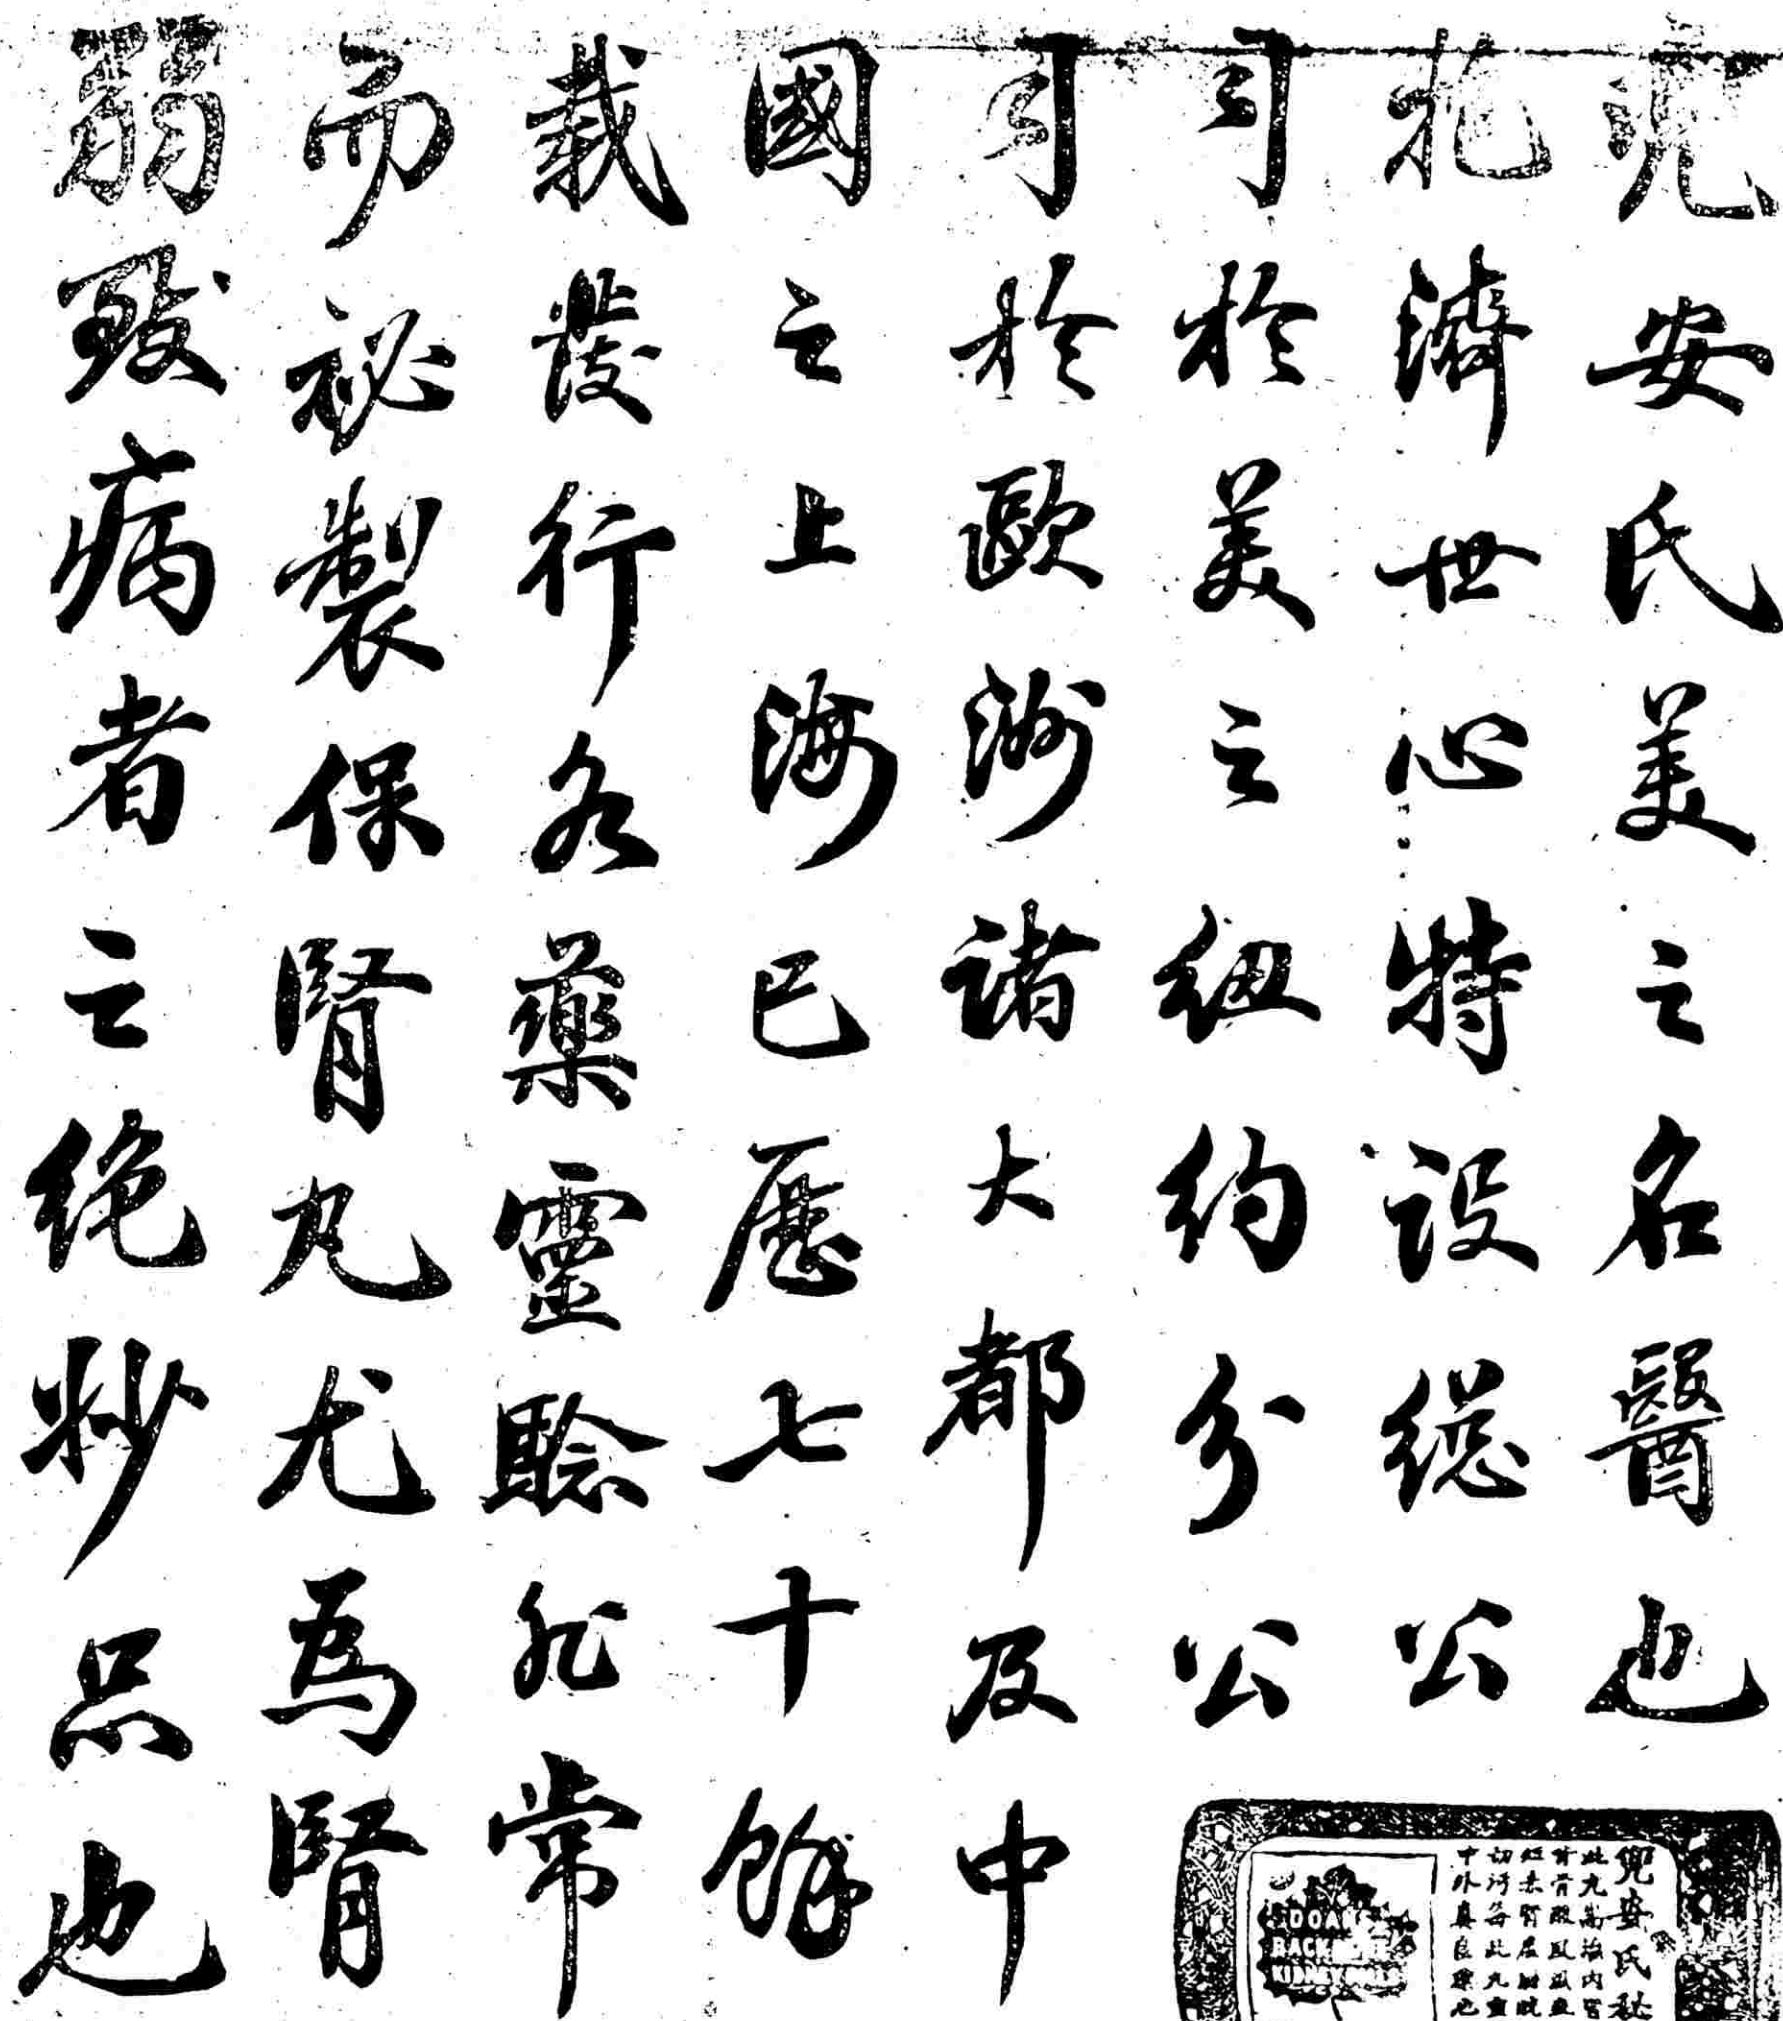 兜安氏美之名醫也
抱濟世心特設總公
司於美之紐約分公
司於歐洲諸大都及中
國之上海已歷七十餘
載發行各藥靈驗非常
而祕製保腎丸尤爲腎
弱致病者之絶妙品也
兜安氏秘
DOAN'S
BACKACHE
KIDNEY PILLS